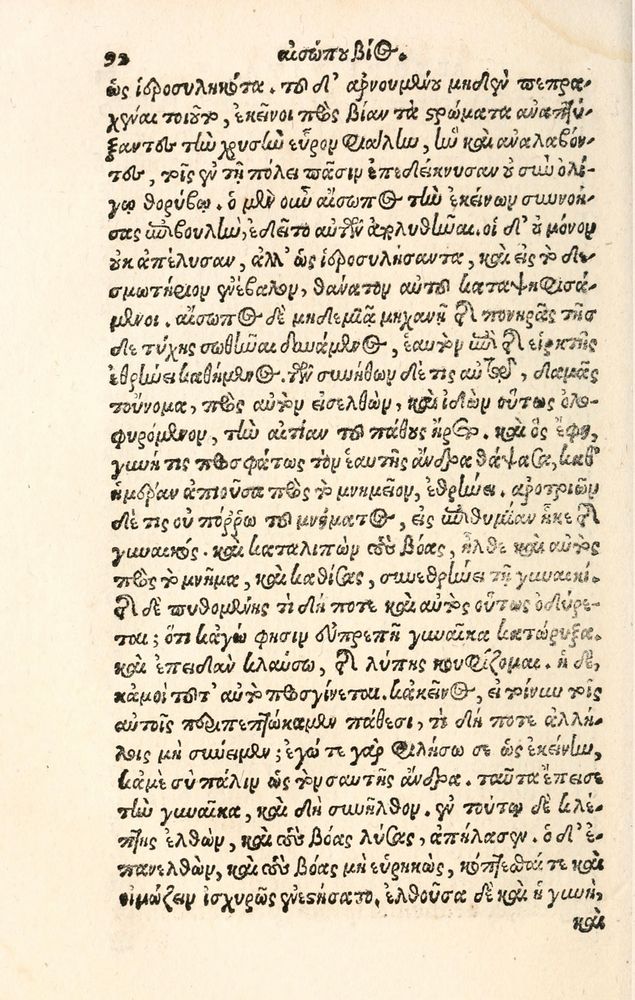 92 αἰσώπου βίος.
ὡς ἱεροσυληκότα. τοῦ δ' ἀρνουμένου μηδὲν πεπρα-
χέναι τοιοῦτο, ἐκεῖνοι πρὸς βίαν τὰ στρώματα ἀναπτύ-
ξαντες τὴν χρυσῆν εὗρον φιάλην, ἣν καὶ ἀναλαβόν-
τες, τοῖς ἐν τῇ πόλει πᾶσιν ἐπεδείκνυσαν οὐ σὺν ὀλί-
γῳ θορύβῳ. ὁ μὲν οὖν αἴσωπος τὴν ἐκείνων συννοή-
σας ἐπιβουλὴν, ἐδεῖτο αὐτῶν ἀπολυθῆναι. οἱ δ' οὐ μόνον
οὐκ ἀπέλυσαν, ἀλλ' ὡς ἱεροσυλήσαντα, καὶ εἰς τὸ δε-
σμωτήριον ἐνέβαλον, θάνατον αὐτοῦ καταψηφισά-
μενοι. αἴσωπος δὲ μηδεμιᾷ μηχανῇ τῆς πονηρᾶς τῆσ
δε τύχης σωθῆναι δυνάμενος, ἑαυτὸν ἐπὶ τῆς εἱρκτῆς
ἐθρήνει καθήμενος. τῶν συνήθων δέ τις αὐτοῦ, δαμᾶς
τοὔνομα, πρὸς αὐτὸν εἰσελθὼν, καὶ ἰδὼν οὕτως ὀλο-
φυρόμενον, τὴν αἰτίαν τοῦ πάθους ἤρετο. καὶ ὃς ἔφη,
γυνή τις προσφάτως τὸν ἑαυτῆς ἄνδρα θάψασα, καθ'
ἡμέραν ἀπιοῦσα πρὸς τὸ μνημεῖον, ἐθρήνει. ἀροτριῶν
δέ τις οὐ πόῤῥω τοῦ μνήματος, εἰς ἐπιθυμίαν ἧκε τῆς
γυναικός. καὶ καταλιπὼν τοὺς βόας, ἦλθε καὶ αὐτὸς
πρὸς τὸ μνῆμα, καὶ καθίσας, συνεθρήνει τῇ γυναικί.
τῆς δὲ πυθομένης τί δή ποτε καὶ αὐτὸς οὕτως ὀδύρε-
ται; ὅτι κἀγώ φησιν εὐπρεπῆ γυναῖκα κατώρυξα.
καὶ ἐπειδὰν κλαύσω, τῆς λύπης κουφίζομαι. ἡ δὲ,
κἀμοὶ τοῦτ' αὐτὸ προσγίνεται. κἀκεῖνος, εἰ τοίνυν τοῖς
αὐτοῖς περιπεπτώκαμεν πάθεσι, τί δή ποτε ἀλλή-
λοις μὴ σύνειμεν; ἐγώ τε γὰρ φιλήσω σε ὡς ἐκείνην,
κἀμὲ σὺ πάλιν ὡς τὸν σαυτῆς ἄνδρα. ταῦτα ἔπεισε
τὴν γυναῖκα, καὶ δὴ συνῆλθον. ἐν τούτῳ δὲ κλέ-
πτης ἐλθὼν, καὶ τοὺς βόας λύσας, ἀπήλασεν. ὁ δ' ἐ-
πανελθὼν, καὶ τοὺς βόας μὴ εὑρηκὼς, κόπτεσθαί τε καὶ
οἰμώζειν ἰσχυρῶς ἐνεστήσατο. ἐλθοῦσα δὲ καὶ ἡ γυνὴ,
καὶ